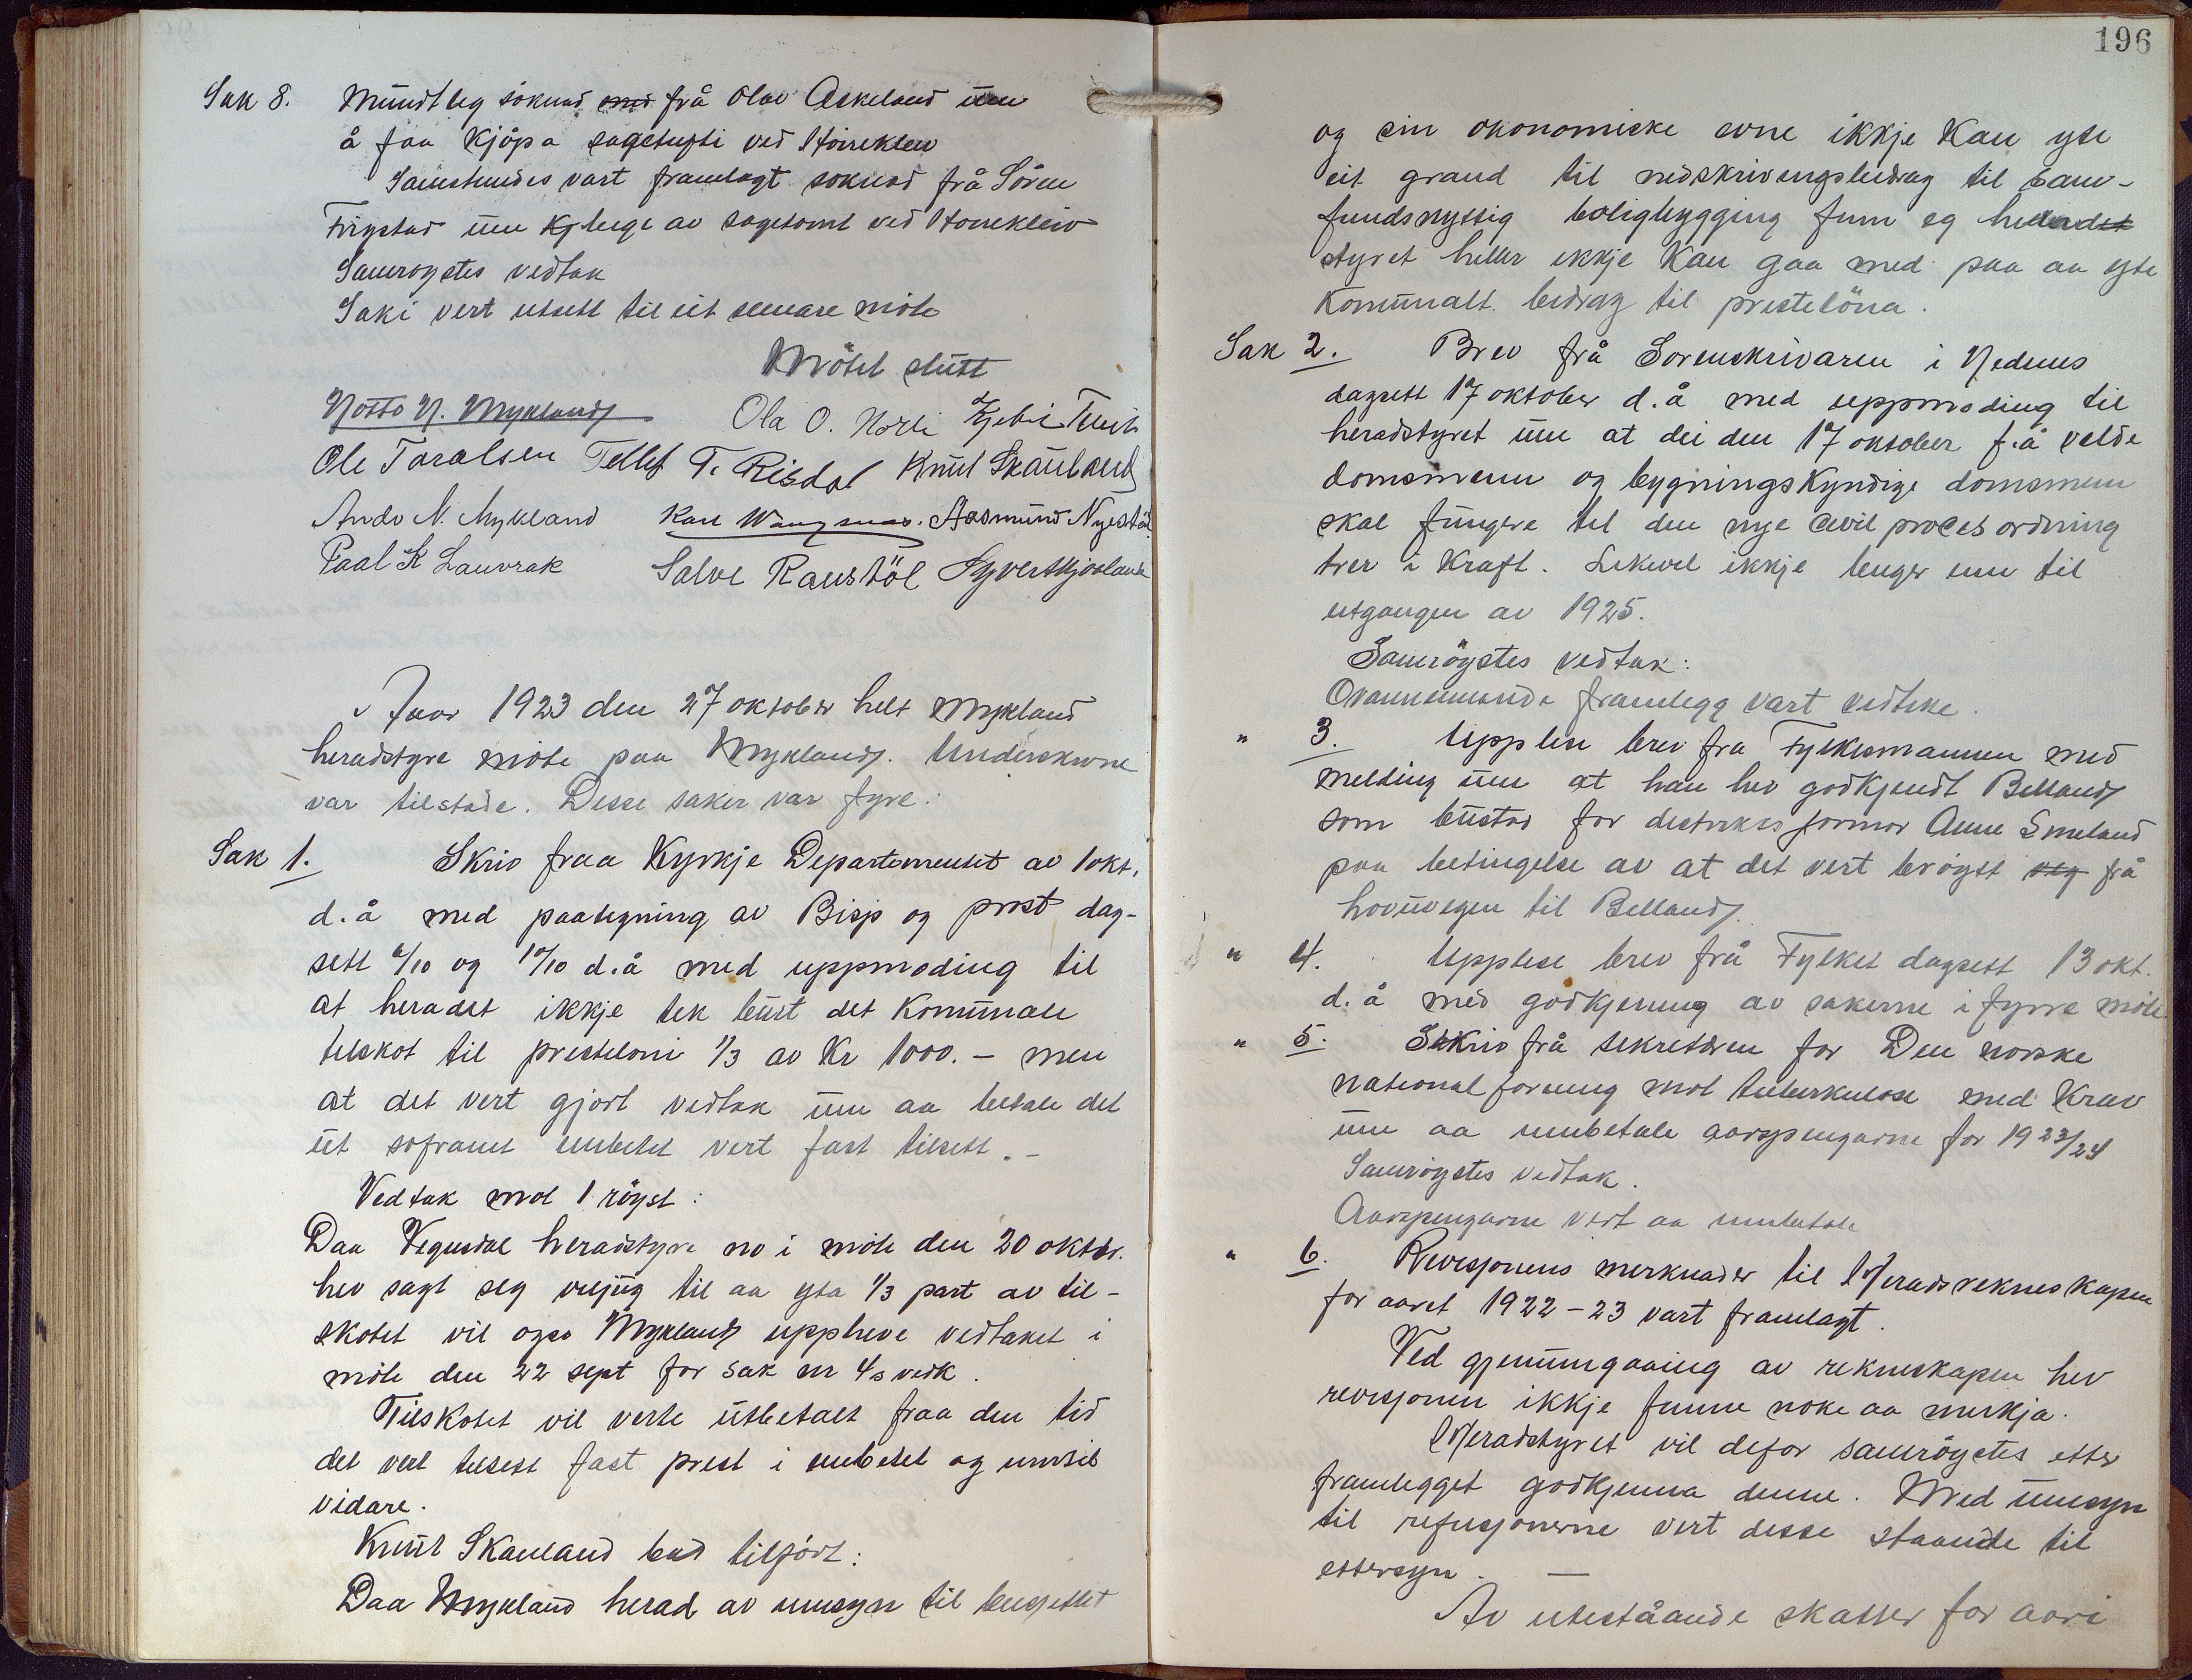 Sak 8. Mundtleg söknad med frå Olav Askeland um
å faa kjöpa sagetufti ved Hörekleiv
Samstundes vart framlagt soknad frå Sören
Frigstad um leige av sagetomt ved Horekleiv
Samroystes vedtak
Saki vert utsett til eit seinare möte
Mötet slutt
Notto N. Mykland Ola O. Norli
Ole Taralsen Tellef T. Risdal Knut Skauland
Ando N. Mykland Aasmund Nystöl
Paal K Lauvrak Salve Raustöl
Aar 1923 den 27 oktober helt Mykland
heradstyre möte paa Mykland. Underskrivne
var tilstade. Desse saker var fyre:
Sak 1. Skriv fraa Kyrkje Departementet av 1 okt.
d.å med paategning av Bisp og prost dag-
sett 6/10 og 10/10 d.å med uppmoding til
at heradet ikkje tek burt det Komunale
tilskot til presteloni 1/3 av Kr 1000.- men
at det vert gjort vedtak um aa betale det
ut soframt embetet vert fast tilsett.-
Vedtak mot 1 röyst:
Daa Vegusdal heradstyre no i möte den 20 oktbr.
hev sagt seg viljug til aa yta 1/3 part av til-
skotet vil ogso Mykland uppheve vedtaket i
möte den 22 sept for sak nr 4s vedk.
Tilskotet vil verte utbetalt fraa den tid
det vert tilsett fast prest i embetet og inntil
vidare.
Knut Skauland bad tilfört:
Daa Mykland herad av umsyn til bugsettet
196
og sin okonomiske evne ikkje Kan yte
eit grand til nedskrivingsbidrag til sam-
fundsnyttig boligbygging finn eg heradet
styret heller ikkje kan gaa med paa aa yte
Komunalt bidrag til prestelöna.
Sak 2. Brev frå Sorenskrivaren i Nedenes
dagsett 17 oktober d.å med uppmoding til
heradstyret um at dei den 17 oktober f.å valde
domsmenn og bygningskyndige domsmenn
skal fungere til den nye Civil procesordning
trer i Kraft. Likevel ikkje lenger enn til
utgangen av 1925.
Samröystes vedtak:
Ovannemnde framlegg vart vedteke.
" 3. Upplese brev fra Fylkesmannen med
melding um at han hev godkjendt Belland
som bustad for distriktsjormor Anne Smeland
paa betingelse av at det vert bröytt veg frå
hovuvegen til Belland.
" 4. Upplese brev frå Fylket dagsett 13 okt.
d.å med godkjenning av sakerne i fyrre möte
" 5. Skriv frå sekretæren for Den norske
nationalforening mot tuberkulose med Krav
um aa innbetale aarspengarne for 1923/24
Samröystes vedtak.
Aarspengarne vert aa innbetale
" 6. Revisjonens merknader til Heradsrekneskapen
for aaret 1922-23 vart framlagt.
Ved gjenumgaaing av rekneskapen hev
revisjonen ikkje funne noke aa merkja.
Heradstyret vil defor samröystes etter
framlegget godkjenna denne. Med umsyn
til refusjonerne vert desse staande til
ettersyn. —
Av uteståande skatter for aari